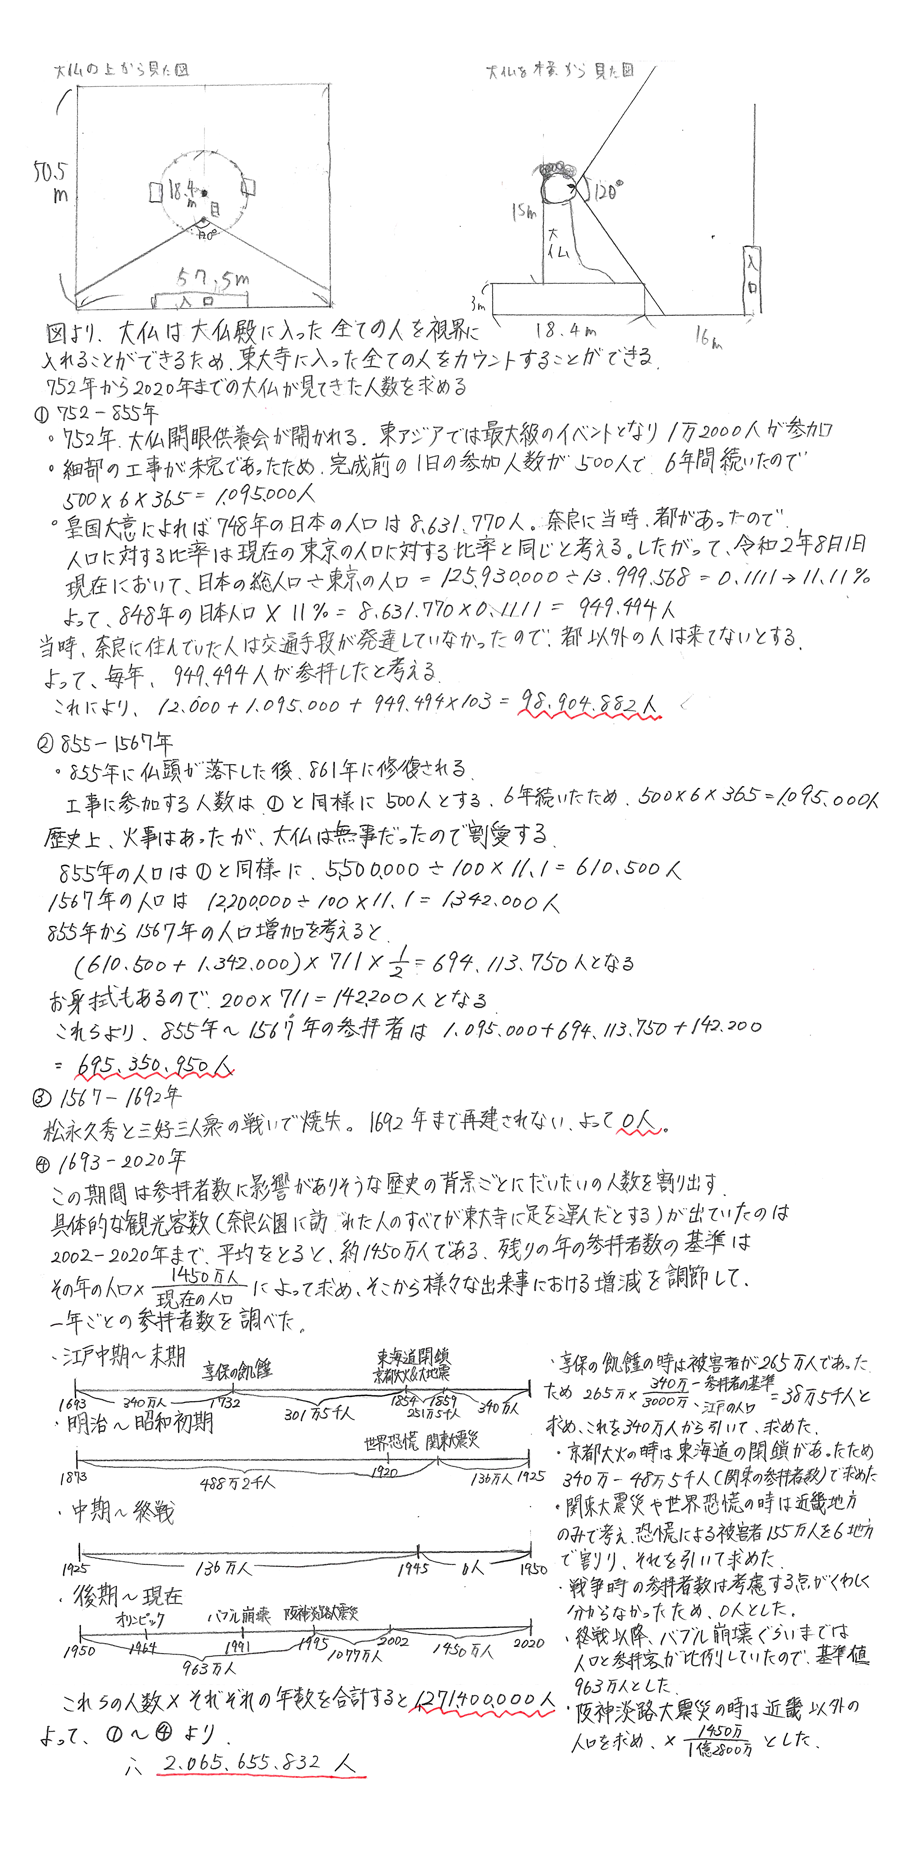 大仏の上から見た図
50.5
m
18.4
m
目
120°
57.5m
入口
大仏を横から見た図
120°
15m
大仏
入口
3m
18.4m
16m
図より、大仏は大仏殿に入った全ての人を視界に
入れることができるため、東大寺に入った全ての人をカウントすることができる.
752年から2020年までの大仏が見てきた人数を求める
① 752-855年
・752年、大仏開眼供養会が開かれる. 東アジアでは最大級のイベントとなり1万2000人が参加
・細部の工事が未完であったため、完成前の1日の参加人数が500人で、6年間続いたので
500×6×365=1.095.000人
・皇国大意によれば748年の日本の人口は8.631.770人。奈良に当時、都があったので、
人口に対する比率は現在の東京の人口に対する比率と同じと考える。したがって、令和2年8月1日
現在において、日本の総人口÷東京の人口=125.930.000÷13.999.568=0.1111→11.11%
よって、848年の日本人口×11%=8.631.770×0.1111=949.494人
当時、奈良に住んでいた人は交通手段が発達していなかったので、都以外の人は来てないとする.
よって、毎年、949.494人が参拝したと考える.
これにより、12.000+1.095.000+949.494×103=98.904.882人
② 855-1567年
・855年に仏頭が落下した後、861年に修復される.
工事に参加する人数は、①と同様に500人とする、6年続いたため、500×6×365=1.095.000人
歴史上、火事はあったが、大仏は無事だったので割愛する.
855年の人口は①と同様に、5,500,000÷100×11.1=610.500人
1567年の人口は 12,200,000÷100×11.1=1,342.000人
855年から1567年の人口増加を考えると、
(610.500+1.342.000)×711×1/2=694.113.750人となる
お身拭もあるので、200×711=142,200人となる
これらより、855年〜1567年の参拝者は 1.095.000+694.113.750+142.200
=695.350.950人
③ 1567-1692年
松永久秀と三好三人衆の戦いで焼失。1692年まで再建されない、よって0人。
④ 1693-2020年
この期間は参拝者数に影響がありそうな歴史の背景ごとにだいたいの人数を割り出す.
具体的な観光客数(奈良公園に訪れた人のすべてが東大寺に足を運んだとする)が出ていたのは
2002-2020年まで、平均をとると、約1450万人である、残りの年の参拝者数の基準は
その年の人口×1450万人/現在の人口によって求め、そこから様々な出来事における増減を調節して、
一年ごとの参拝者数を調べた。
・江戸中期〜末期
享保の飢饉
東海道閉鎖
京都大火&大地震
1693
340万人
1732
301万5千人
1854
1859
251万5千人
340万人
・明治〜昭和初期
世界恐慌 関東大震災
1873
488万2千人
1920
136万人
1925
・中期〜終戦
1925
136万人
1945
0人
1950
・後期〜現在
オリンピック
バブル崩壊
阪神淡路大震災
1950
1964
1991
1995
2002
2020
963万人
1077万人
1450万人
これらの人数×それぞれの年数を合計すると1,271,400,000人
よって、①〜④より、
∴ 2.065.655.832人
・享保の飢饉の時は被害者が265万人であった
ため 265万×340万-参拝者の基準/3000万-江戸の人口=38万5千人と
求め、これを340万人から引いて、求めた.
・京都大火の時は東海道の閉鎖があったため
340万-48万5千人(関東の参拝者数)で求めた
・関東大震災や世界恐慌の時は近畿地方
のみで考え、恐慌による被害者155万人を6地方
で割り、それを引いて求めた.
・戦争時の参拝者数は考慮する点がくわしく
分からなかったため、0人とした。
・終戦以降、バブル崩壊ぐらいまでは
人口と参拝客が比例していたので、基準値
963万人とした.
・阪神淡路大震災の時は近畿以外の
人口を求め、×1450万/1億2800万とした.